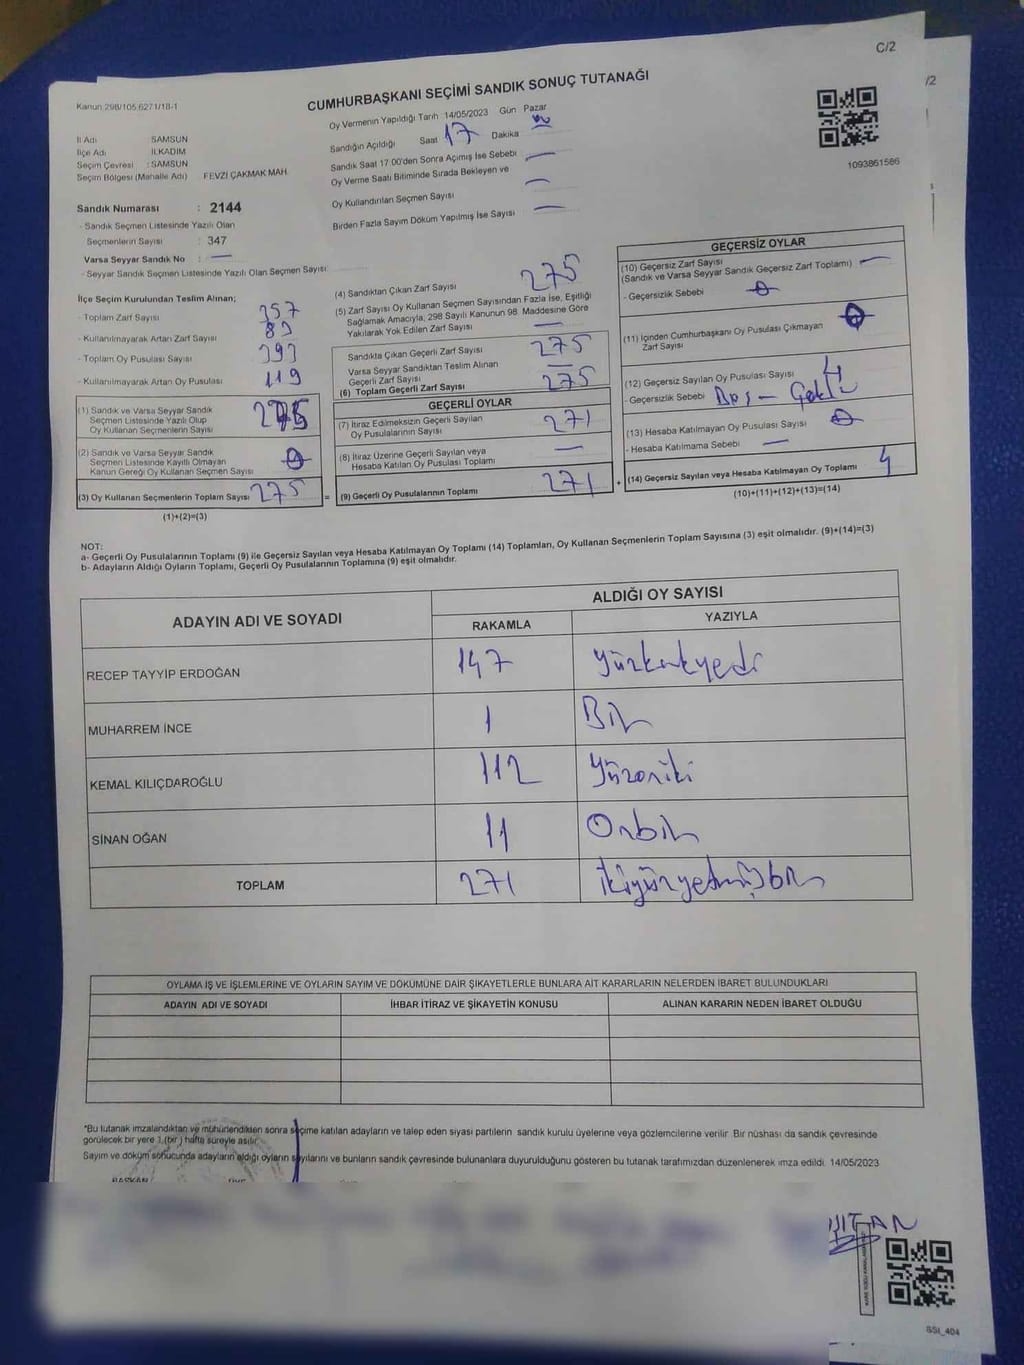 C/2
/2
Kanun 298/105 6271/18-1
CUMHURBAŞKANI SEÇİMİ SANDIK SONUÇ TUTANAĞI
Oy Vermenin Yapıldığı Tarih 14/05/2023 Gün Pazar
İl Adı SAMSUN
İlçe Adı İLKADIM
Seçim Çevresi : SAMSUN
Seçim Bölgesi (Mahalle Adı) FEVZİ ÇAKMAK MAH.
Sandığın Açıldığı Saat 17 Dakika
Sandık Saat 17:00'den Sonra Açımış İse Sebebi
Oy Verme Saati Bitiminde Sırada Bekleyen ve
Oy Kullandırılan Seçmen Sayısı
Birden Fazla Sayım Döküm Yapılmış İse Sayısı
1093861586
Sandık Numarası : 2144
- Sandık Seçmen Listesinde Yazılı Olan
Seçmenlerin Sayısı : 347
Varsa Seyyar Sandık No : —
- Seyyar Sandık Seçmen Listesinde Yazılı Olan Seçmen Sayısı:
İlçe Seçim Kurulundan Teslim Alınan;
- Toplam Zarf Sayısı
- Kullanılmayarak Artan Zarf Sayısı
- Toplam Oy Pusulası Sayısı
- Kullanılmayarak Artan Oy Pusulası 119
(1) Sandık ve Varsa Seyyar Sandık
Seçmen Listesinde Yazılı Olup
Oy Kullanan Seçmenlerin Sayısı 275
(2) Sandık ve Varsa Seyyar Sandık
Seçmen Listesinde Kayıtlı Olmayan
Kanun Gereği Oy Kullanan Seçmen Sayısı
(3) Oy Kullanan Seçmenlerin Toplam Sayısı 275 =
(1)+(2)=(3)
(4) Sandıktan Çıkan Zarf Sayısı 275
(5) Zarf Sayısı Oy Kullanan Seçmen Sayısından Fazla İse, Eşitliği
Sağlamak Amacıyla, 298 Sayılı Kanunun 98. Maddesine Göre
Yakılarak Yok Edilen Zarf Sayısı —
Sandıkta Çıkan Geçerli Zarf Sayısı 275
Varsa Seyyar Sandıktan Teslim Alınan
Geçerli Zarf Sayısı —
(6) Toplam Geçerli Zarf Sayısı 275
GEÇERLİ OYLAR
(7) İtiraz Edilmeksizin Geçerli Sayılan
Oy Pusulalarının Sayısı 271
(8) İtiraz Üzerine Geçerli Sayılan veya
Hesaba Katılan Oy Pusulası Toplamı —
(9) Geçerli Oy Pusulalarının Toplamı 271 +
GEÇERSİZ OYLAR
(10) Geçersiz Zarf Sayısı
(Sandık ve Varsa Seyyar Sandık Geçersiz Zarf Toplamı) —
- Geçersizlik Sebebi
(11) İçinden Cumhurbaşkanı Oy Pusulası Çıkmayan
Zarf Sayısı
(12) Geçersiz Sayılan Oy Pusulası Sayısı 4
- Geçersizlik Sebebi
(13) Hesaba Katılmayan Oy Pusulası Sayısı
- Hesaba Katılmama Sebebi —
(14) Geçersiz Sayılan veya Hesaba Katılmayan Oy Toplamı 4
(10)+(11)+(12)+(13)=(14)
NOT:
a- Geçerli Oy Pusulalarının Toplamı (9) ile Geçersiz Sayılan veya Hesaba Katılmayan Oy Toplamı (14) Toplamları, Oy Kullanan Seçmenlerin Toplam Sayısına (3) eşit olmalıdır. (9)+(14)=(3)
b- Adayların Aldığı Oyların Toplamı, Geçerli Oy Pusulalarının Toplamına (9) eşit olmalıdır.
ADAYIN ADI VE SOYADI ALDIĞI OY SAYISI
RAKAMLA YAZIYLA
RECEP TAYYİP ERDOĞAN 147 yüzkırkyedi
MUHARREM İNCE 1 Bir
KEMAL KILIÇDAROĞLU 112 yüzoniki
SİNAN OĞAN 11 Onbir
TOPLAM 271 ikiyüzyetmişbir
OYLAMA İŞ VE İŞLEMLERİNE VE OYLARIN SAYIM VE DÖKÜMÜNE DAİR ŞİKAYETLERLE BUNLARA AİT KARARLARIN NELERDEN İBARET BULUNDUKLARI
ADAYIN ADI VE SOYADI İHBAR İTİRAZ VE ŞİKAYETİN KONUSU ALINAN KARARIN NEDEN İBARET OLDUĞU
*Bu tutanak imzalandıktan ve mühürlendikten sonra seçime katılan adayların ve talep eden siyasi partilerin sandık kurulu üyelerine veya gözlemcilerine verilir. Bir nüshası da sandık çevresinde
görülecek bir yere 1 (bir) hafta süreyle asılır.
Sayım ve döküm sonucunda adayların aldığı oyların sayılarını ve bunların sandık çevresinde bulunanlara duyurulduğunu gösteren bu tutanak tarafımızdan düzenlenerek imza edildi. 14/05/2023
BAŞKAN ÜYE
SSİ_404